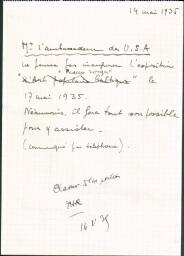 14 mai 1935
Mr l'ambassadeur des U.S.A
ne pourra pas inaugurer l'exposition
"L'Art populaire baltique" le
17 mai 1935.
Néanmoins, il fera tout son possible
pour y assister.
(communiqué par téléphone).
Classer
16 V 35